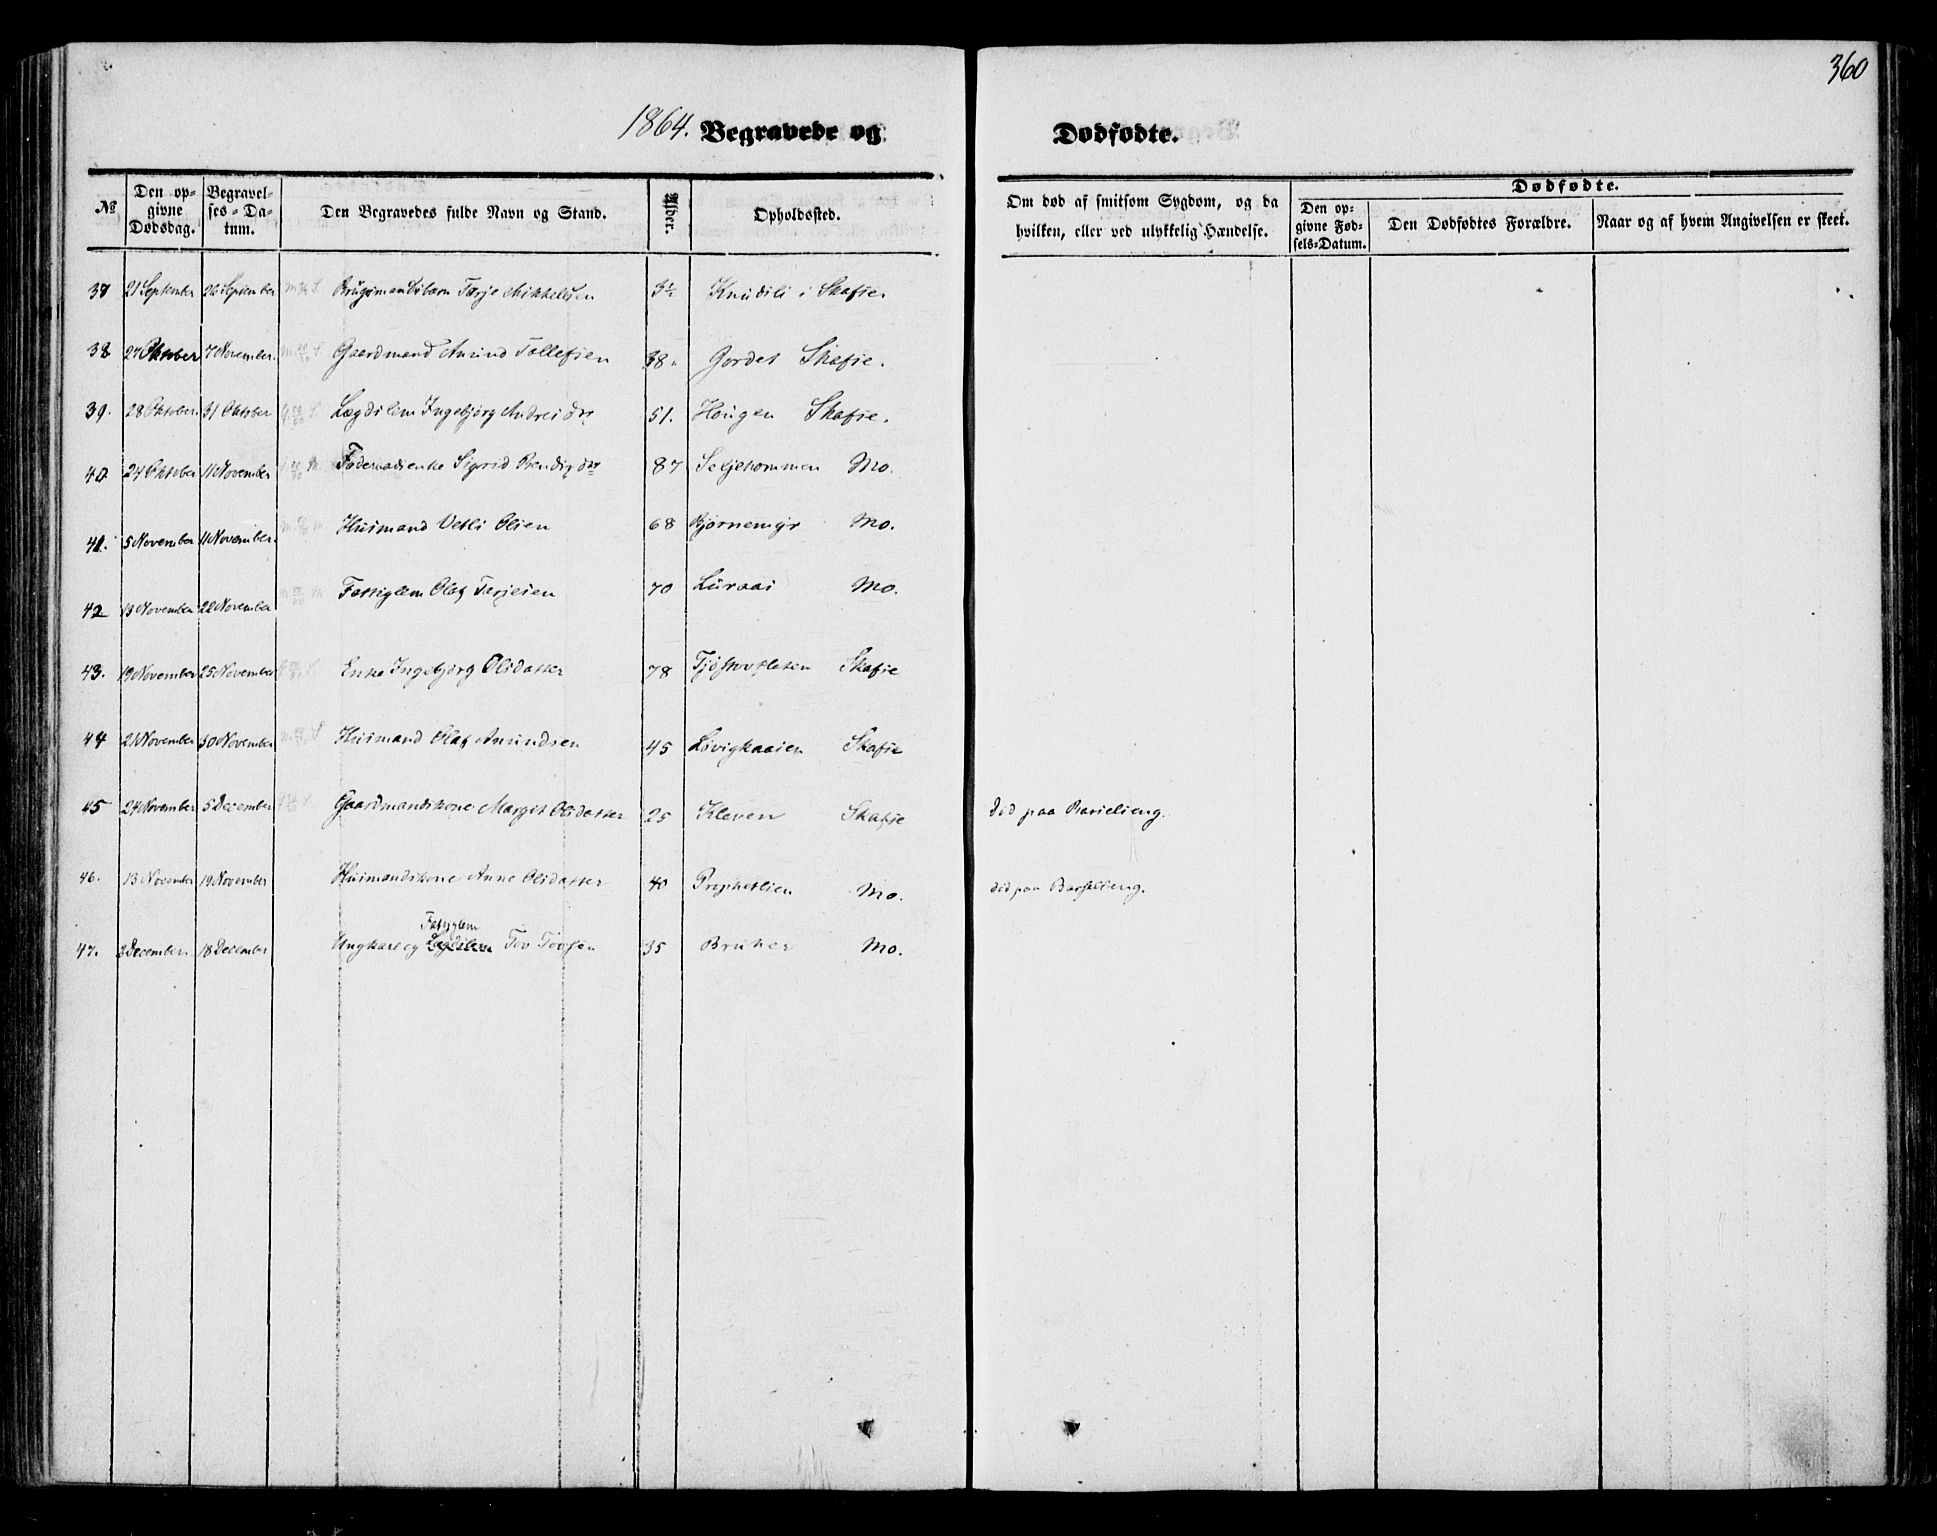 360
1864. Begravede og Dødfødte.
№ Den opgivne Dødsdag. Begravelses-Datum. Den Begravedes fulde Navn og Stand. Alder. Opholdssted. Om død af smitsom Sygdom, og da hvilken, eller ved ulykkelig Hændelse. Dødfødte. Den opgivne Fødsels-Datum. Den Dødfødtes Forældre. Naar og af hvem Angivelsen er skeet.
37 21 September 26 September Brugsmandsbarn Tarje Mikkelsen Knudsli i Skafse.
38 27 Oktober 7 November. Gaardmand Anund Tollefsen 38. Gordet Skafse.
39. 28 Oktober. 31 Oktober Lægdslem Ingebjørg Andresdtr 51. Haugen Skafse.
40 24 Oktober 11 November Føderaadsenke Sigrid 87 Mo.
41. 5 November 11 November. Husmand Vetli Olsen 68 Bjørnemyr Mo.
42 13 November 22 November Fattiglem Olaf Tarjesen 70 Luraas Mo.
43. 19 November 25 November Enke Ingebjørg Olsdatter 78 Skafse
44 21 November 30 November Husmand Olaf Anundsen 45 Skafse
45 24 November 5 December Gaardmandskone Margit Olsdatter 25 Kleven Skafse død paa Barselseng.
46. 13 November 19 November Husmandskone Anne Olsdatter 40 Mo. død paa Barselseng.
Fattiglem
47. 3 December. 18 December Ungkarl og Lægdslem Tov Tovsen 35 Mo.